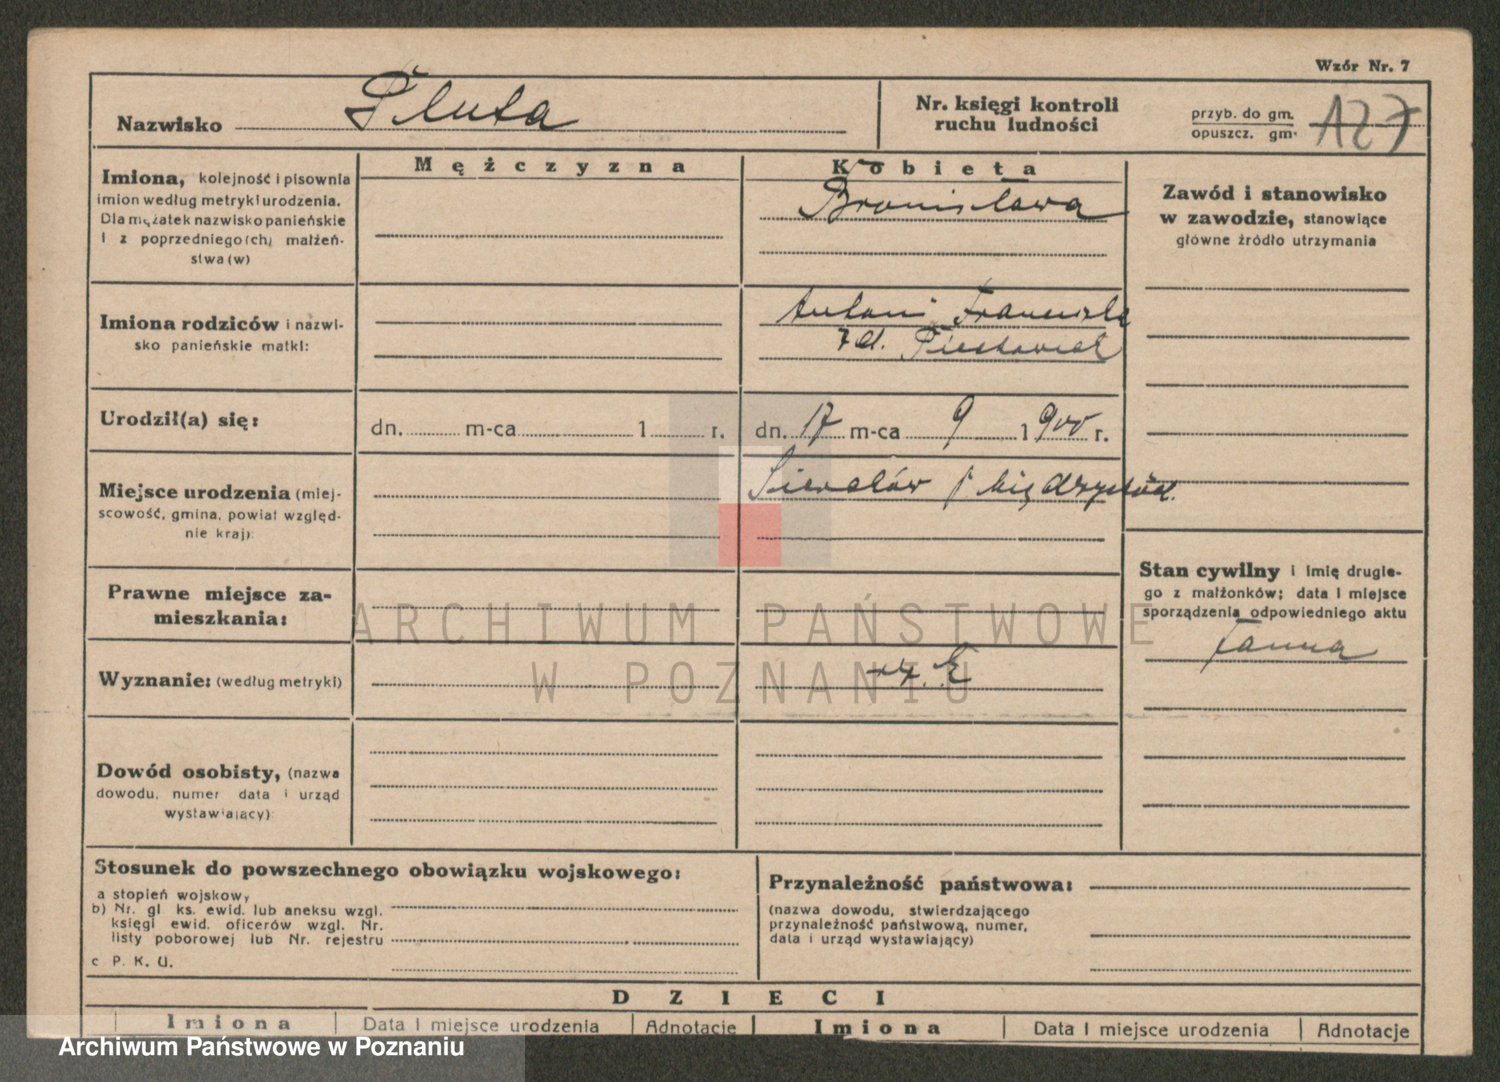 Wzór Nr. 7
Nazwisko Pluta
Nr. księgi kontroli
ruchu ludności
przyb. do gm.
opuszcz. gm.
127
Mężczyzna
Kobieta
Imiona, kolejność i pisownia
imion według metryki urodzenia.
Dla mężatek nazwisko panieńskie
i z poprzedniego(ch) małżeń-
stwa(w)
Bronisława
Zawód i stanowisko
w zawodzie, stanowiące
główne źródło utrzymania
Imiona rodziców i nazwi-
sko panieńskie matki:
Antoni Franciszka
z d.
Urodził(a) się:
dn. m-ca 1 r.
dn. 17 m-ca 9 1900 r.
Miejsce urodzenia (miej-
scowość, gmina, powiat względ-
nie kraj):
Sieraków p. Międzychód.
Prawne miejsce za-
mieszkania:
Stan cywilny i imię drugie-
go z małżonków; data i miejsce
sporządzenia odpowiedniego aktu
Panna
ARCHIWUM PAŃSTWOWE
W POZNANIU
Wyznanie: (według metryki)
rz. k
Dowód osobisty, (nazwa
dowodu, numer data i urząd
wystawiający):
Stosunek do powszechnego obowiązku wojskowego:
a stopień wojskowy
b) Nr. gl ks. ewid. lub aneksu wzgl.
księgi ewid. oficerów wzgl. Nr.
listy poborowej lub Nr. rejestru
c P. K. U.
Przynależność państwowa:
(nazwa dowodu, stwierdzającego
przynależność państwową, numer,
data i urząd wystawiający)
DZIECI
Imiona Data i miejsce urodzenia Adnotacje Imiona Data i miejsce urodzenia Adnotacje
Archiwum Państwowe w Poznaniu